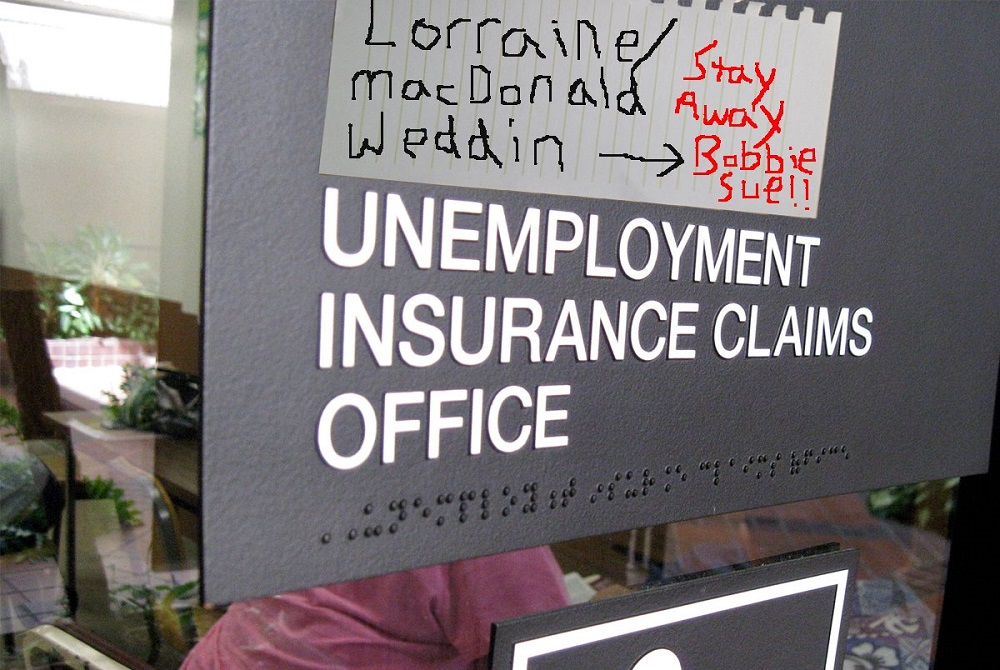 Lorraine/
MacDonald
Weddin →
Stay
Away
Bobbie
Sue!!
UNEMPLOYMENT
INSURANCE CLAIMS
OFFICE